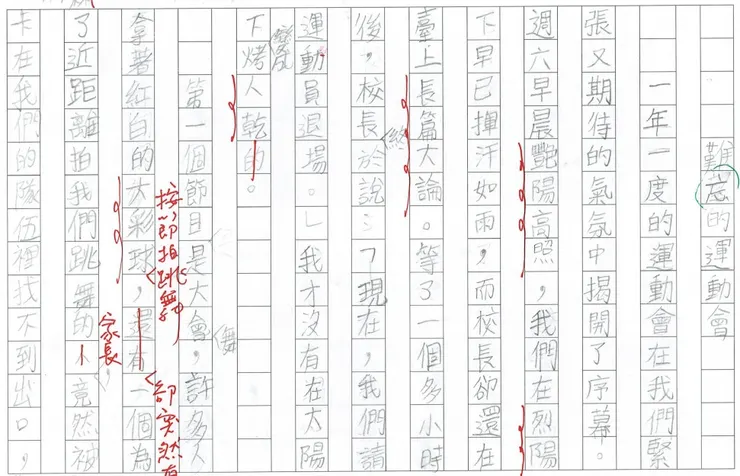 難忘的運動會
一年一度的運動會在我們緊
張又期待的氣氛中揭開了序幕。
週六早晨艷陽高照,我們在烈陽
下早已揮汗如雨,而校長卻還在
臺上長篇大論。等了一個多小時
後,校長終於說:「現在,我們請
運動員退場。」我才沒有在太陽
下變成烤人乾的。
第一個節目是大會舞,許多人
按節拍跳舞
卻突然有
拿著紅白的大彩球,還有一個為
家長
了近距離拍我們跳舞的人竟然被
卡在我們的隊伍裡找不到出口,